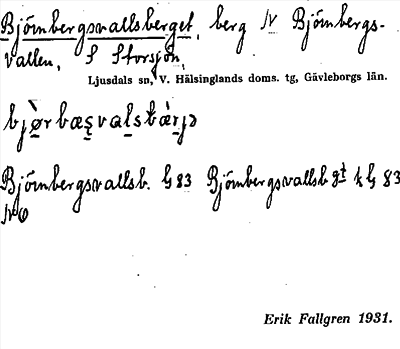 Björnbergsvallsberget, berg N Björnbergs-
vallen, S Storsjön,
Ljusdals sn, V. Hälsinglands doms. tg, Gävleborgs län.
Björnbergsvallsb. G 83 Björnbergsvallsb gt k G 83
Erik Fallgren 1931.